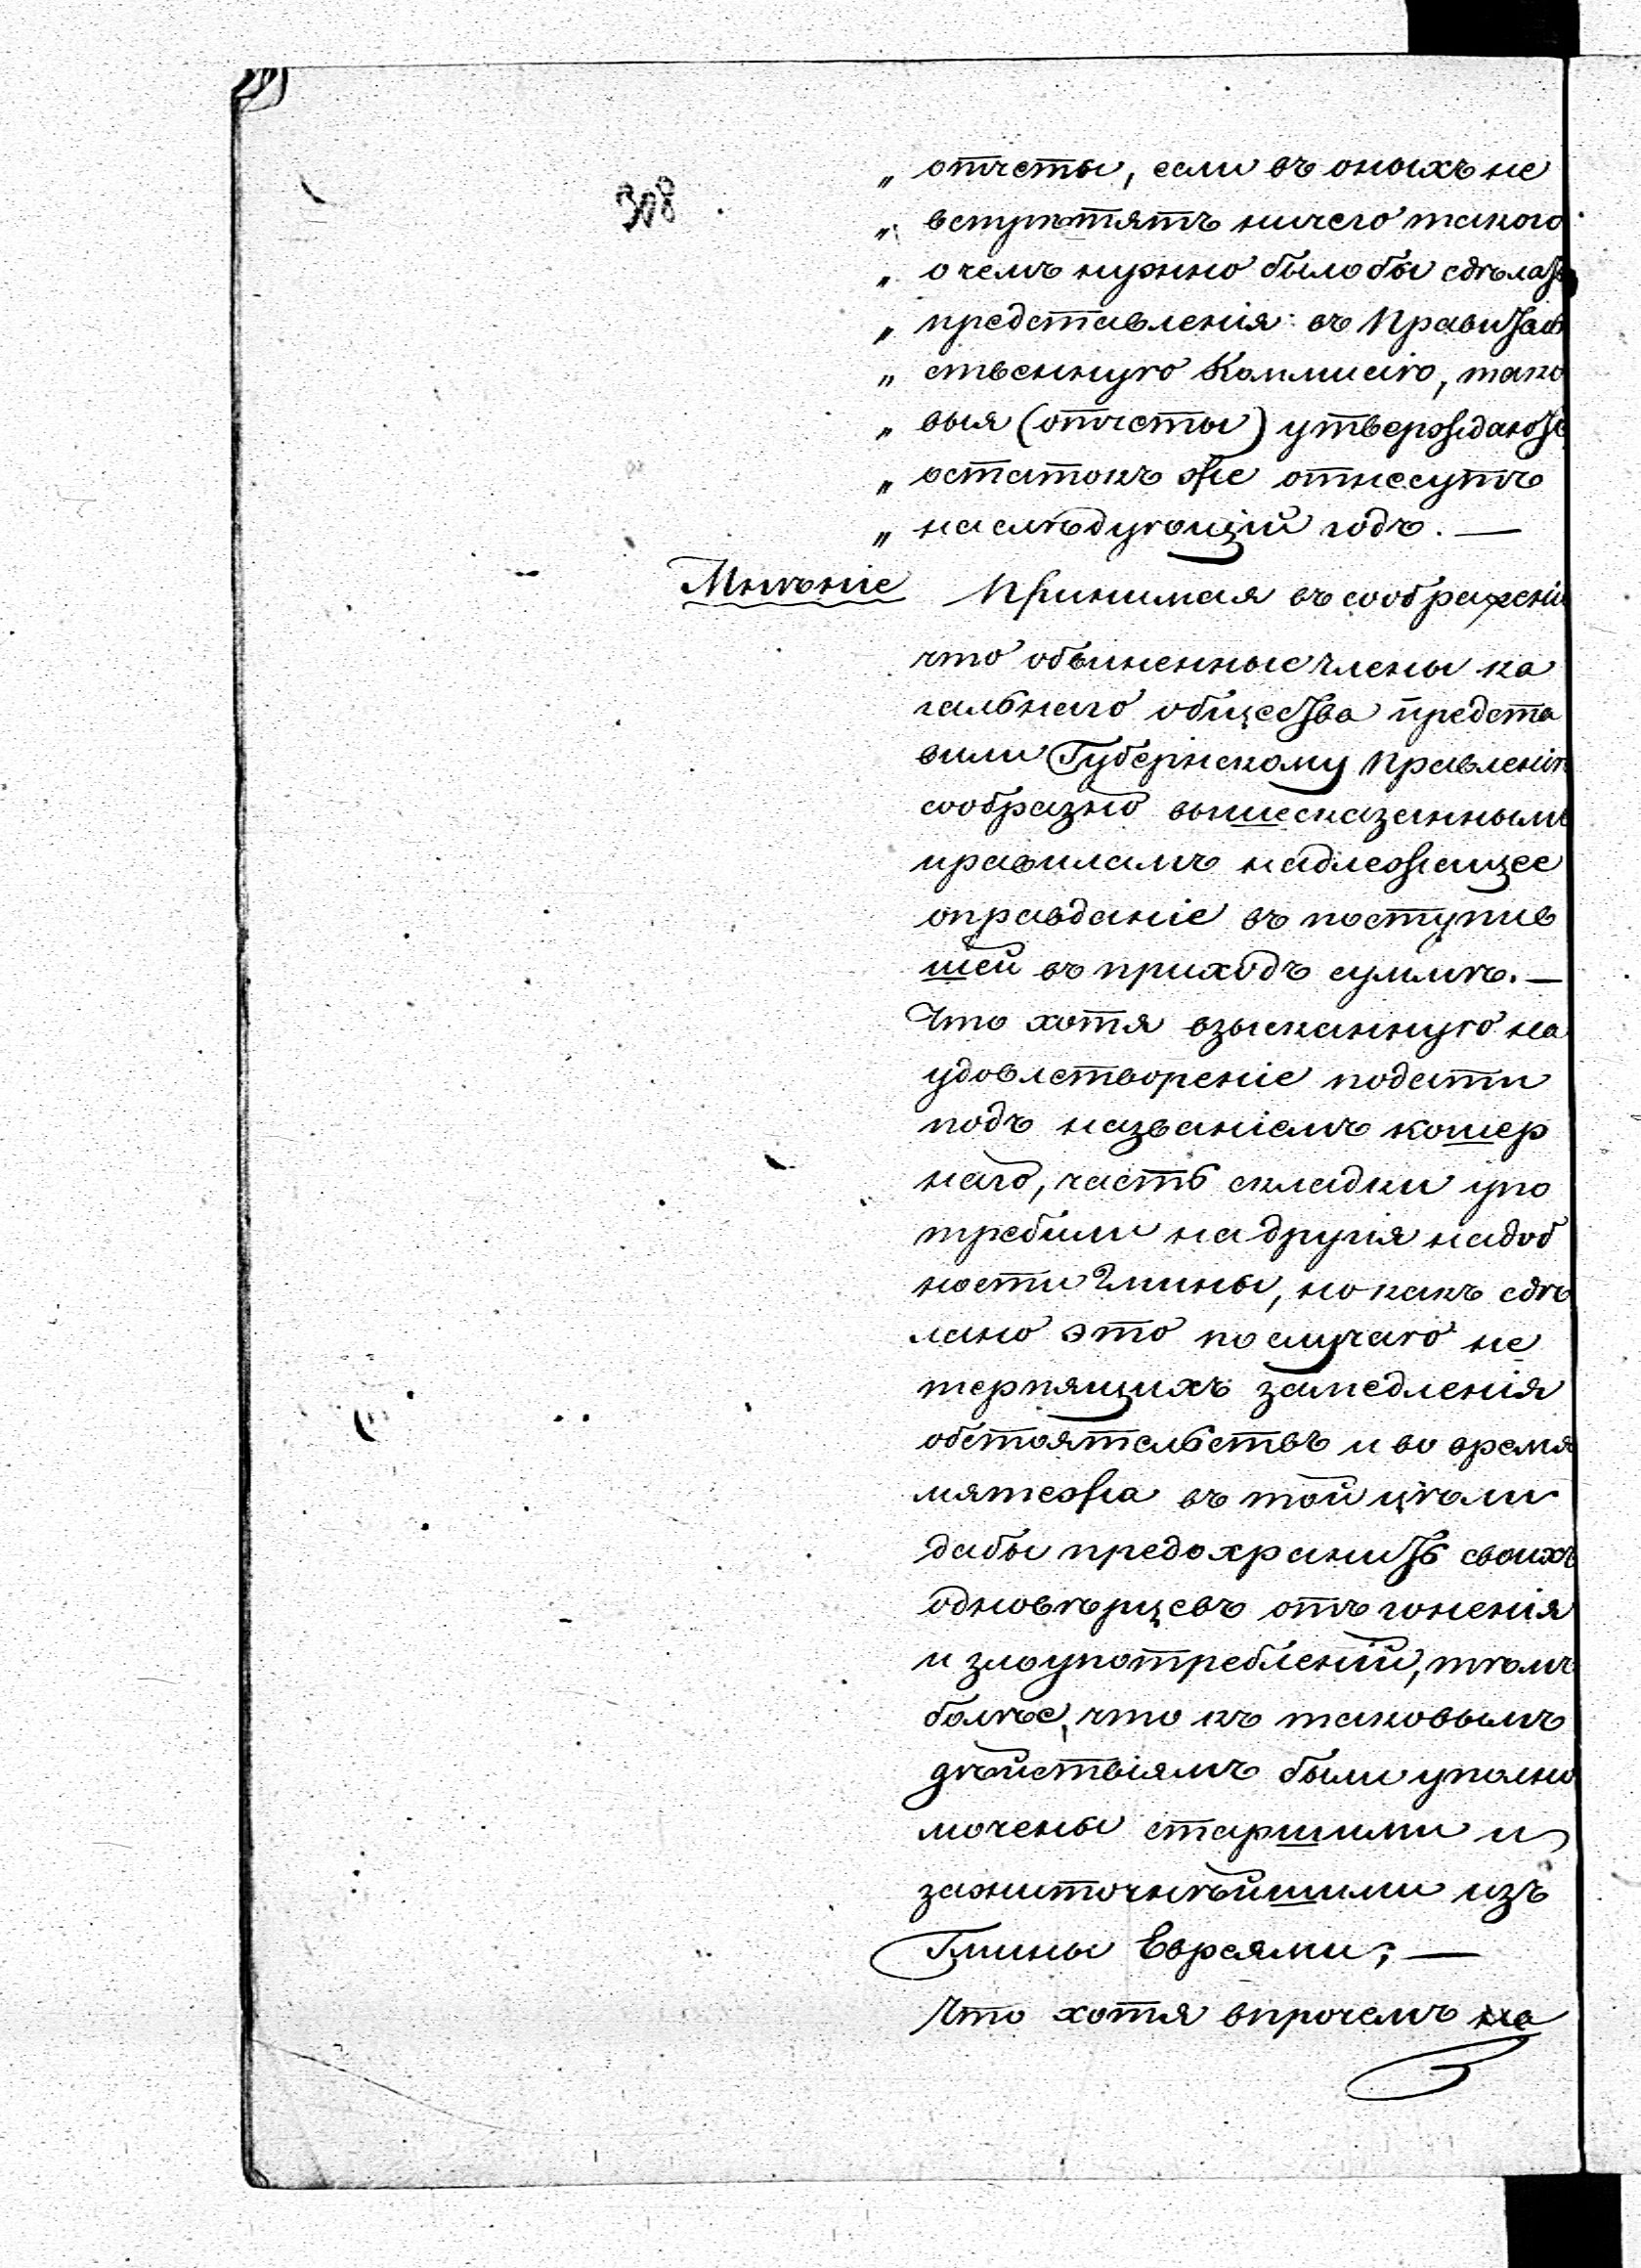 308
„ отчеты, если въ оныхъ не
„ встрѣтятъ ничего такого
„ о чемъ нужно былобы сдѣлать
„ представленія въ Правитель
„ ственную Коммисію, тако
„ выя (отчеты) утверждаютъ
„ остатокъ же отнесутъ
„ на слѣдующій годъ. —
Мнѣніе Принимая въ соображеніе
что обвиненные члены ка
гальнаго общества предста
вили Губернскому Правленію
сообразно вышесказаннымъ
правиламъ надлежащее
оправданіе въ поступив
шей въ приходъ суммѣ. —
Что хотя взысканную на
удовлетвореніе подати
подъ названіемъ кошер
наго, часть складки упо
требили на другія надоб
ности Гмины, но какъ сдѣ
лано это по случаю не
терпящихъ замедленія
обстоятельствъ и во время
мятежа въ той цѣли
дабы предохранить своихъ
одновѣрцевъ отъ гоненія
и злоупотребленій, тѣмъ
болѣе, что къ таковымъ
дѣйствіямъ были уполно
мочены старшими и
зажиточнѣйшими изъ
Гмины Евреями; —
Что хотя впрочемъ на